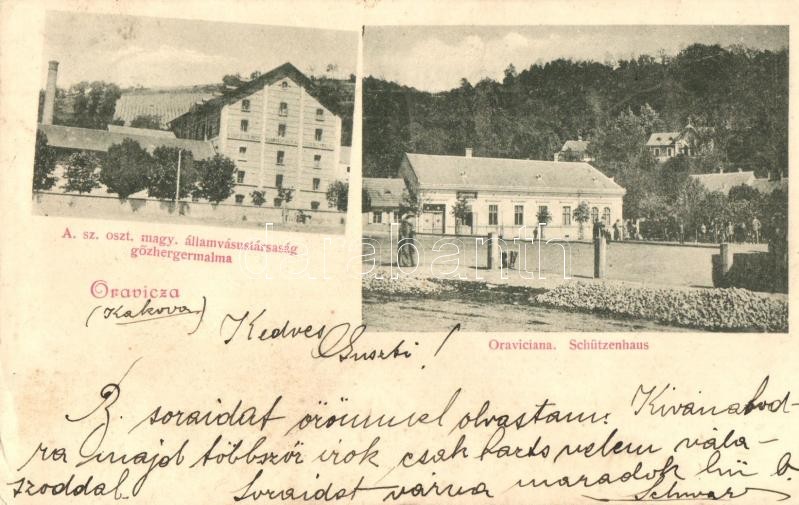 A. sz. oszt. magy. államvásustársaság
gőzhergermalma
Oravicza
(Kakova)
Oraviciana. Schützenhaus
darabanth
Kedves Guszti!
B. soraidat örömmel olvastam. Kivánatod-
ra majd többször irok csak tarts velem vála-
szoddal. Soraidat várva maradok hű b.
Schwarz